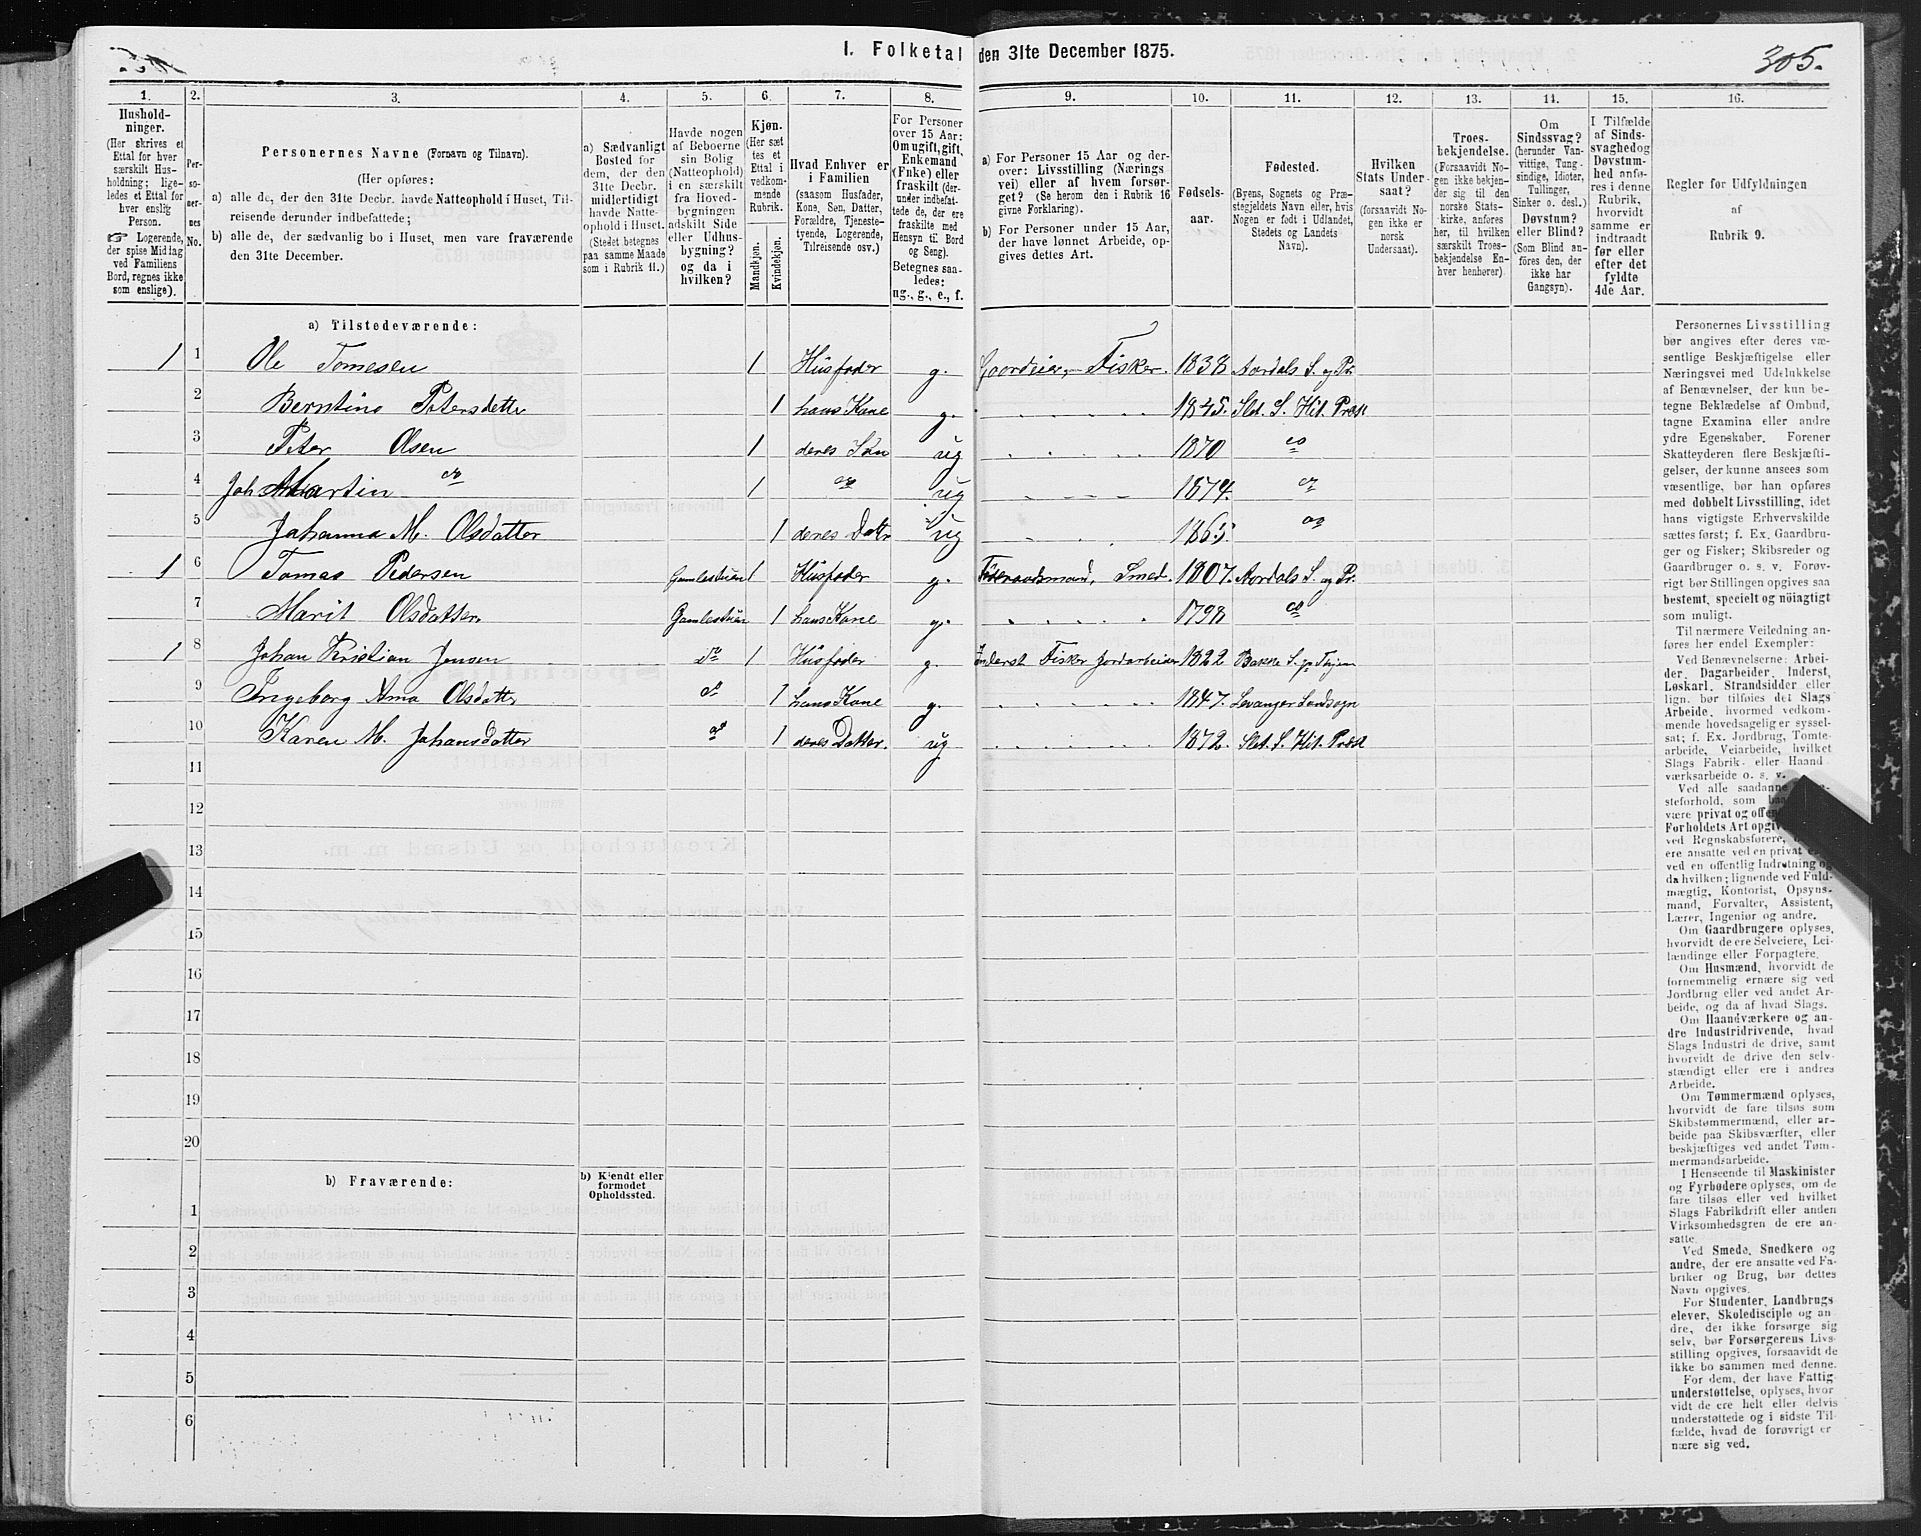 I. Folketal den 31te December 1875.
305.
1. 2. 3. 4. 5. 6. 7. 8. 9. 10. 11. 12. 13. 14. 15. 16.
Hushold-
ninger.
(Her skrives et
Ettal for hver
særskilt Hus-
holdning; lige-
ledes et Ettal for
hver enslig
Person.
☞ Logerende,
der spise Middag
ved Familiens
Bord, regnes ikke
som enslige).
Per-
so-
ner-
nes
No.
Personernes Navne (Fornavn og Tilnavn).
(Her opføres:
a) alle de, der den 31te Decbr. havde Natteophold i Huset, Til-
reisende derunder indbefattede;
b) alle de, der sædvanlig bo i Huset, men vare fraværende
den 31te December.
a) Sædvanligt
Bosted for
dem, der den
31te Decbr.
midlertidigt
havde Natte-
ophold i Huset.
(Stedet betegnes
paa samme Maade
som i Rubrik 11.)
Havde nogen
af Beboerne
sin Bolig
(Natteophold)
i en særskilt
fra Hoved-
bygningen
adskilt Side
eller Udhus-
bygning?
og da i
hvilken?
Kjøn.
(Her sæt
tes et
Ettal i
vedkom-
mende
Rubrik.
Mandkjøn.
Kvindekjøn.
Hvad Enhver er
i Familien
(saasom Husfader,
Kone, Søn, Datter,
Forældre, Tjeneste-
tyende, Logerende,
Tilreisende osv.)
For Personer
over 15 Aar:
Om ugift, gift,
Enkemand
(Enke) eller
fraskilt (der-
under indbefat-
tede de, der ere
fraskilte med
Hensyn til Bord
og Seng).
Betegnes saa-
ledes:
ug., g., e., f.
a) For Personer 15 Aar og der-
over: Livsstilling (Nærings
vei) eller af hvem forsør-
get? (Se herom den i Rubrik 16
givne Forklaring).
b) For Personer under 15 Aar,
der have lønnet Arbeide, op-
gives dettes Art.
Fødsels-
aar.
Fødested.
(Byens, Sognets og Præ-
stegjeldets Navn eller, hvis
Nogen er født i Udlandet,
Stedets og Landets
Navn).
Hvilken
Stats Under
saat?
(forsaavidt No-
gen ikke er
norsk
Undersaat).
Troes-
bekjendelse.
(Forsaavidt No-
gen ikke bekjen-
der sig til den
norske Stats-
kirke, anføres
her, til hvilken
særskilt Troes-
bekjendelse En-
hver henhører).
Om
Sindssvag?
(herunder Van-
vittige, Tung-
sindige, Idioter,
Tullinger,
Sinker o. desl.)
Døvstum?
eller Blind?
(Som Blind an-
føres den, der
ikke har
Gangsyn).
I Tilfælde
af Sinds-
svaghed og
Døvstum-
hed anfø-
res i denne
Rubrik,
hvorvidt
samme er
indtraadt
før eller
efter det
fyldte
4de Aar.
Regler for Udfyldningen
af
Rubrik 9.
a) Tilstedeværende:
1 1 Ole Tomesen 1 Husfader g. Gaardeier, Fisker. 1838 Aordals S. og Pr.
2 Berntine Petersdatter 1 hans Kone g. 1845. Slet. S. Hit. Præst
3 Peter Olsen 1 deres Søn ug 1870 do
4 Joh Martin do 1 do ug 1874. do
5 Johanna M. Olsdatter 1 deres Datr ug 1865. do
1 6 Tomas Pedersen Gamlestuen 1 Husfader g. Føderaadsmand, Smed. 1807. Aordals S. og Pr.
7 Marit Olsdatter Gamlestuen 1 hans Kone g. 1798 do
1 8 Johan Kristian Jensen do 1 Husfader g. Inderst Fisker Jordarbeider 1822 Bakke S.
9 Ingeborg Anna Olsdatter do 1 hans Kone g. 1847. Levanger Landsogn
10 Karen M. Johansdatter do 1 deres Datter. ug 1872. Slet. S. Hit. Præst
11
12
13
14
15
16
17
18
19
20
b) Fraværende:
b) Kjendt eller
formodet
Opholdssted.
1
2
3
4
5
6
Personernes Livsstilling
bør angives efter deres væ-
sentlige Beskjæftigelse eller
Næringsvei med Udelukkelse
af Benævnelser, der kun be-
tegne Beklædelse af Ombud,
tagne Examina eller andre
ydre Egenskaber. Forener
Skatteyderen flere Beskjæfti-
gelser, der kunne ansees som
væsentlige, bør han opføres
med dobbelt Livsstilling, idet
hans vigtigste Erhvervskilde
sættes først; f. Ex. Gaardbru-
ger og Fisker; Skibsreder og
Gaardbruger o. s. v. Forøv-
rigt bør Stillingen opgives saa
bestemt, specielt og nöiagtigt
som muligt.
Til nærmere Veiledning an-
føres her endel Exempler:
Ved Benævnelserne: Arbei-
der, Dagarbeider, Inderst,
Løskarl, Strandsidder eller
lign. bør tilføies det Slags
Arbeide, hvormed vedkom-
mende hovedsagelig er syssel-
sat; f. Ex. Jordbrug, Tomte-
arbeide, Veiarbeide, hvilket
Slags Fabrik- eller Haand-
værksarbeide o. s. v.
Ved alle saadanne
steforhold, som
være privat og
Forholdets Art
ved Regnskabsførere,
ere ansatte ved en privat
ved en offentlig Indretning og
da hvilken; lignende ved Fuld-
mægtig, Kontorist, Opsyns-
mand, Forvalter, Assistent,
Lærer, Ingeniør og andre.
Om Gaardbrugere oplyses,
hvorvidt de ere Selveiere, Lei-
lændinge eller Forpagtere.
Om Husmænd, hvorvidt de
fornemmelig ernære sig ved
Jordbrug eller ved andet Ar-
beide, og da af hvad Slags.
Om Haandværkere og an-
dre Industridrivende, hvad
Slags Industri de drive, samt
hvorvidt de drive den selv-
stændigt eller ere i andres
Arbeide.
Om Tømmermænd oplyses,
hvorvidt de fare tilsøs som
Skibstømmermænd, eller ar-
beide paa Skibsværfter, eller
beskjæftiges ved andet Tøm-
mermandsarbeide.
I Henseende til Maskinister
og Fyrbødere oplyses, om de
fare tilsøs eller ved hvilket
Slags Fabrikdrift eller anden
Virksomhedsgren de ere an-
satte.
Ved Smede, Snedkere og
andre, der ere ansatte ved Fa-
briker og Brug, bør dettes
Navn opgives.
For Studenter, Landbrugs
elever, Skoledisciple og an-
dre, der ikke forsørge sig
selv, bør Forsørgerens Livs-
stilling opgives, forsaavidt de
ikke bo sammen med denne.
For dem, der have Fattig
understøttelse, oplyses, hvor
vidt de ere helt eller delvis
understøttede og i sidste Til-
fælde, hvad de forøvrigt er
nære sig ved.